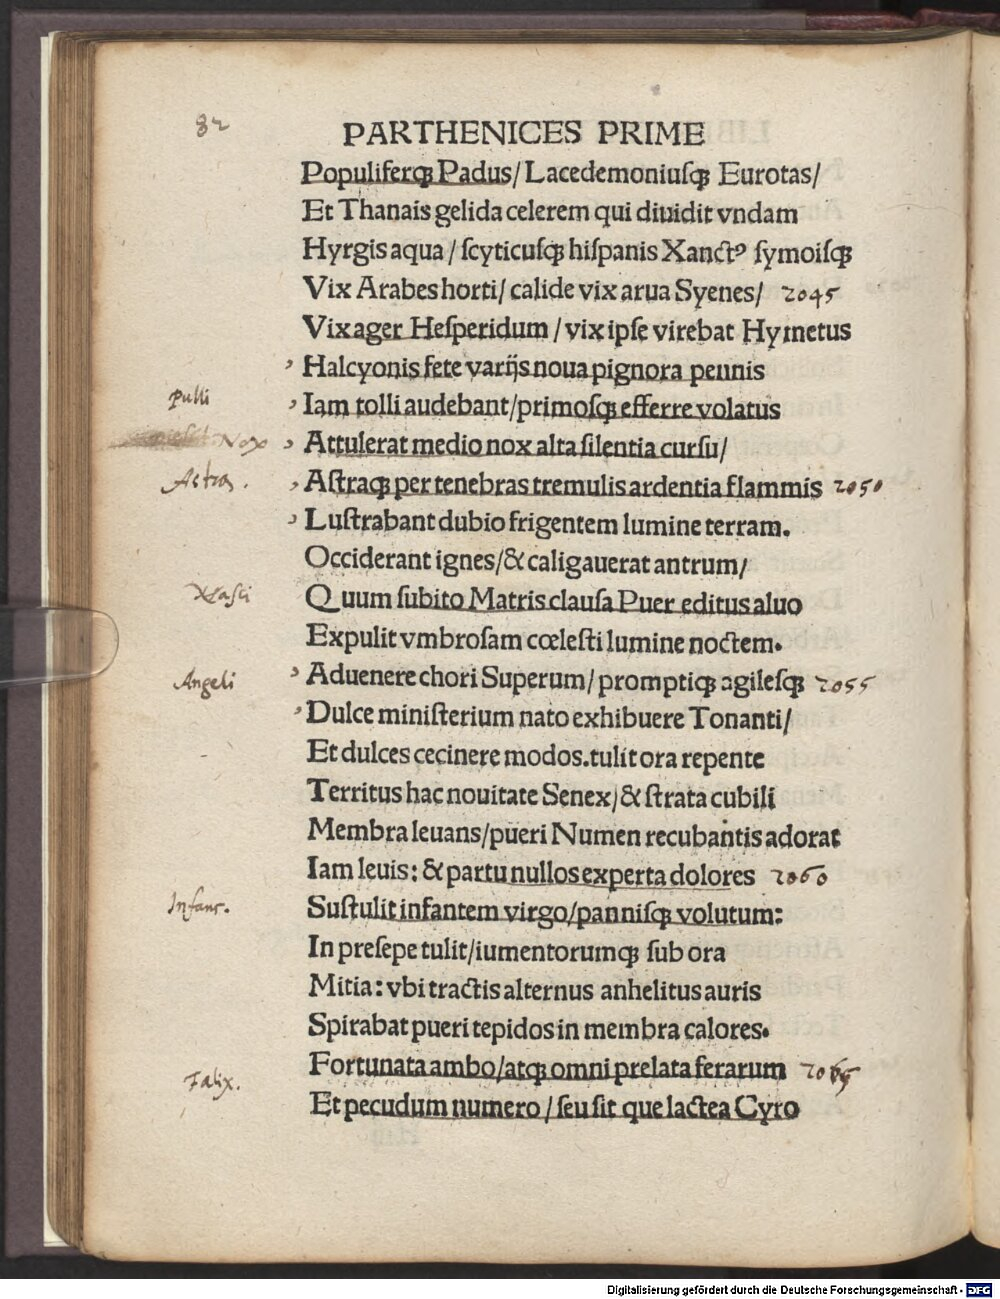 82
PARTHENICES PRIME
Populiferqꝫ Padus/ Lacedemoniuſqꝫ Eurotas/
Et Thanais gelida celerem qui diuidit vndam
Hyrgis aqua / ſcyticuſqꝫ hiſpanis Xanctꝰ ſymoiſqꝫ
Vix Arabes horti/ calide vix arua Syenes/ 2045
Vix ager Heſperidum / vix ipſe virebat Hymetus
Halcyonis fete varijs noua pignora pennis
Pulli Iam tolli audebant/primoſqꝫ efferre volatus
Nox Attulerat medio nox alta ſilentia curſu/
Astra. Aſtraqꝫ per tenebras tremulis ardentia flammis 2050
Luſtrabant dubio frigentem lumine terram.
Occiderant ignes/& caligauerat antrum/
Quum ſubito Matris clauſa Puer editus aluo
Expulit vmbroſam cœleſti lumine noctem.
Angeli Aduenere chori Superum/ promptiqꝫ agileſqꝫ 2055
Dulce miniſterium nato exhibuere Tonanti/
Et dulces cecinere modos.tulit ora repente
Territus hac nouitate Senex/& ſtrata cubili
Membra leuans/pueri Numen recubantis adorat
Iam leuis: & partu nullos experta dolores 2060
Infans. Suſtulit infantem virgo/panniſqꝫ volutum:
In preſepe tulit/iumentorumqꝫ ſub ora
Mitia: vbi tractis alternus anhelitus auris
Spirabat pueri tepidos in membra calores.
Fortunata ambo/atqꝫ omni prelata ferarum 2065
Et pecudum numero / ſeu ſit que lactea Cyro
Digitalisierung gefördert durch die Deutsche Forschungsgemeinschaft - DFG